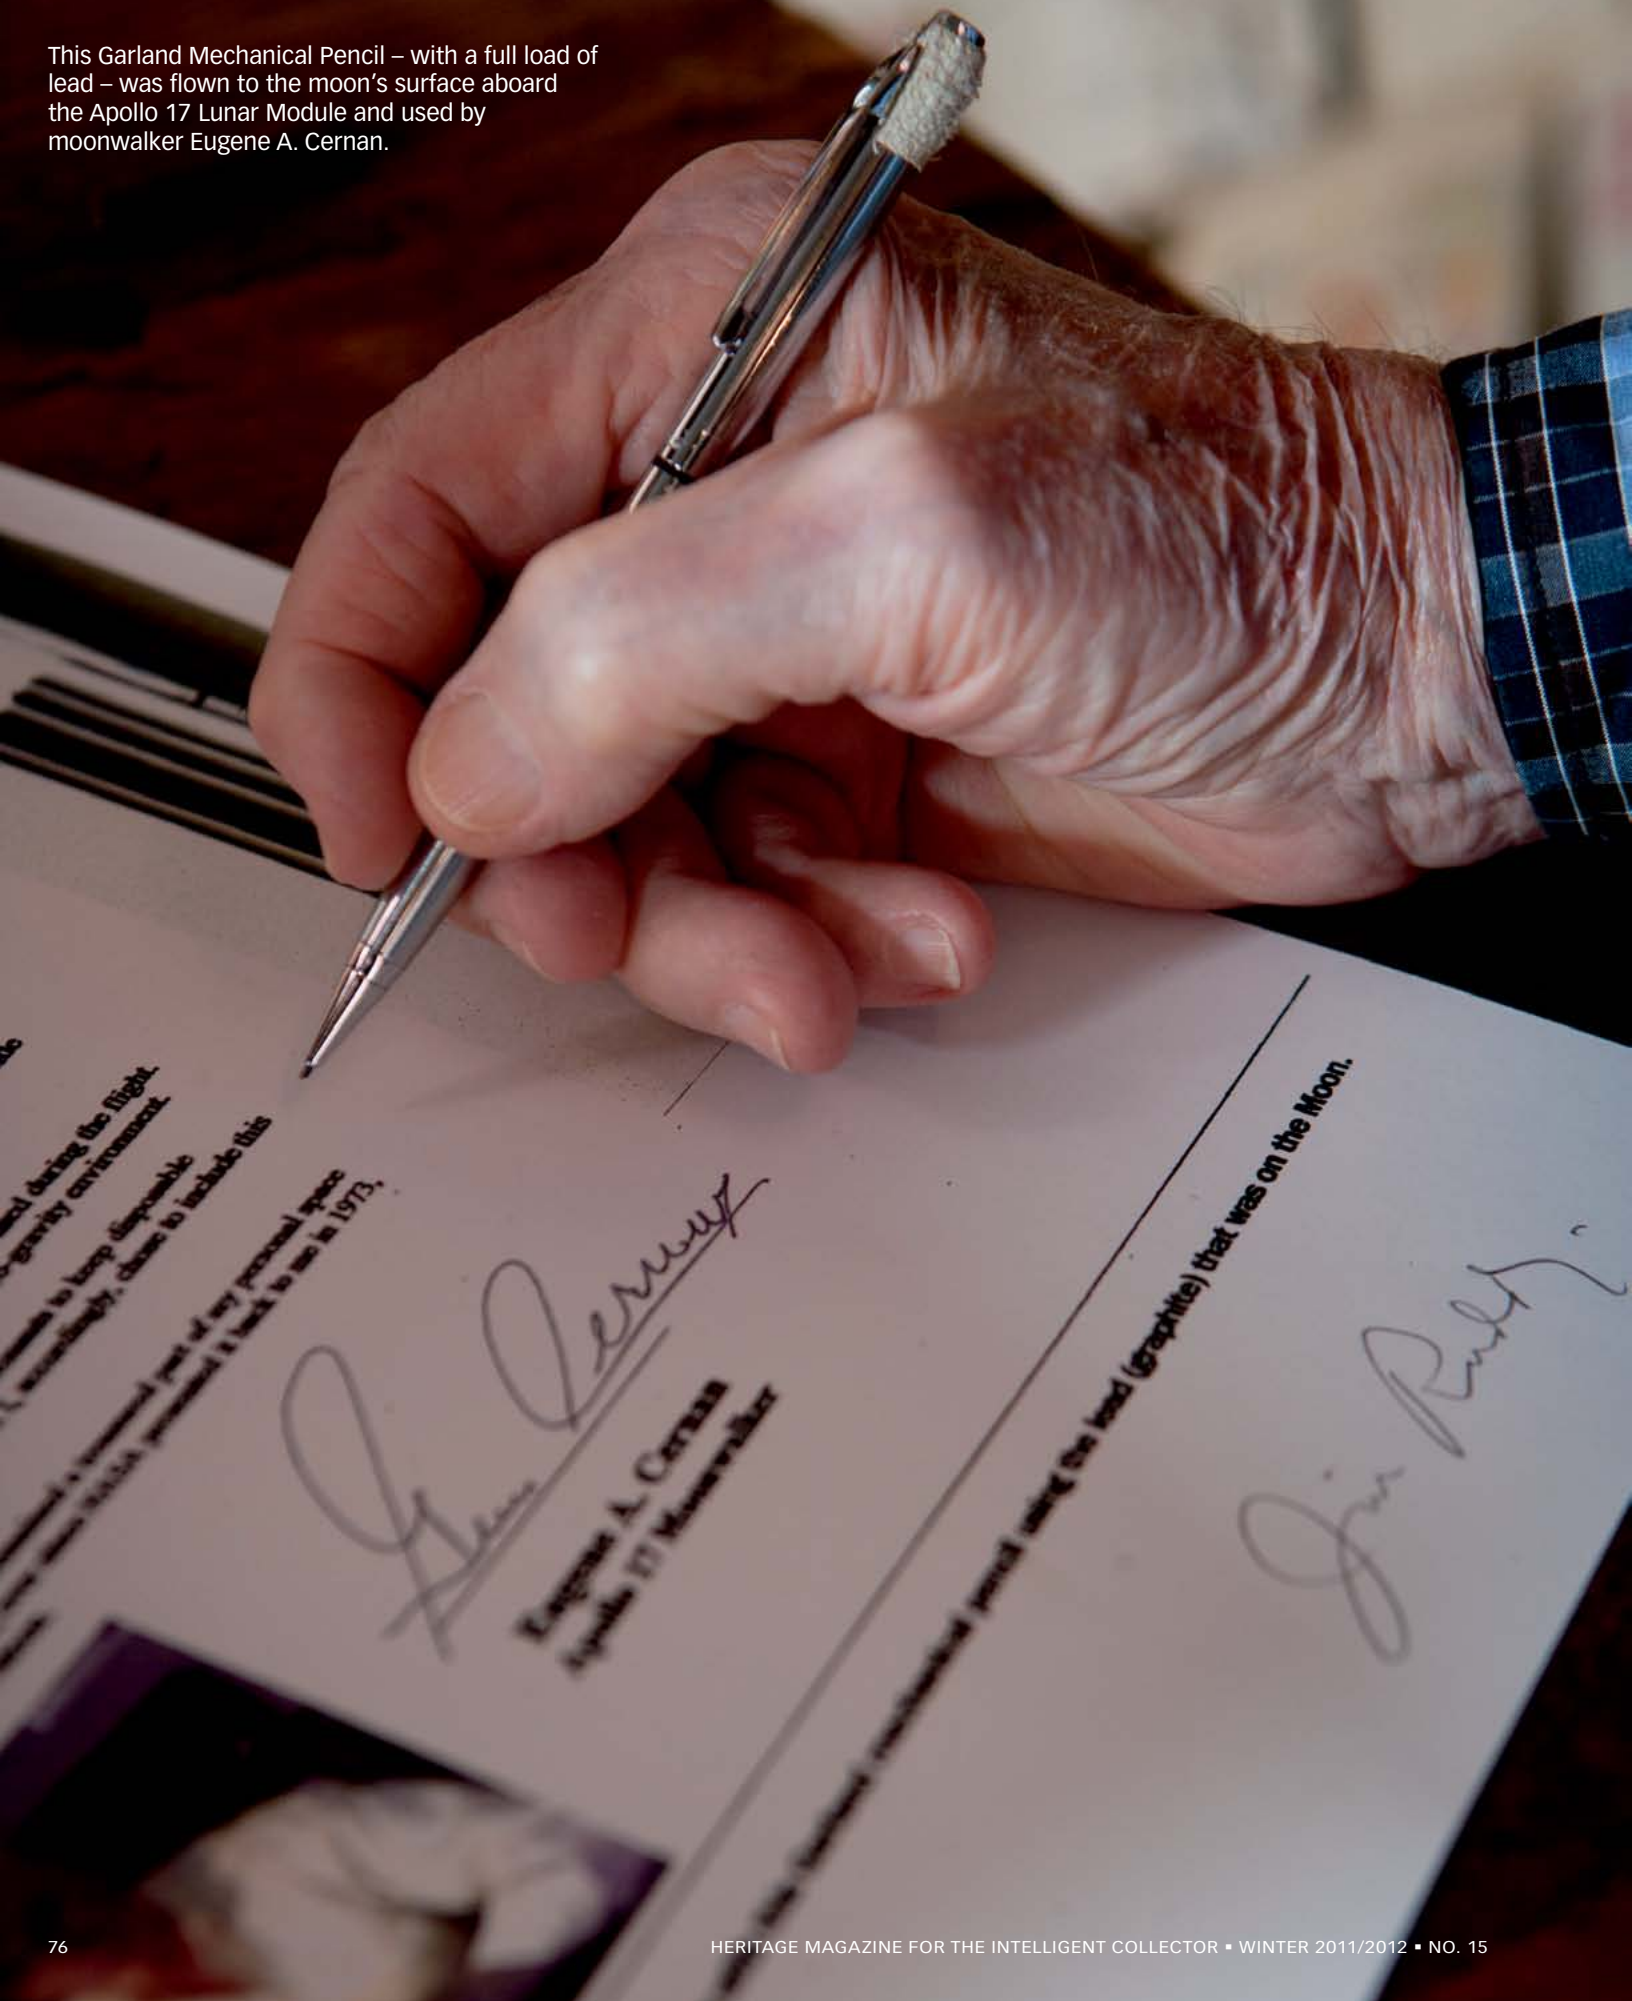 This Garland Mechanical Pencil – with a full load of
lead – was flown to the moon's surface aboard
the Apollo 17 Lunar Module and used by
moonwalker Eugene A. Cernan.
during the flight.
-gravity environment.
to keep disposable
accordingly, chose to include this
a treasured part of my personal space
NASA presented it back to me in 1973.
Gene Cernan
Eugene A. Cernan
Apollo 17 Moonwalker
mechanical pencil using the lead (graphite) that was on the Moon.
Jim
76
HERITAGE MAGAZINE FOR THE INTELLIGENT COLLECTOR ▪ WINTER 2011/2012 ▪ NO. 15